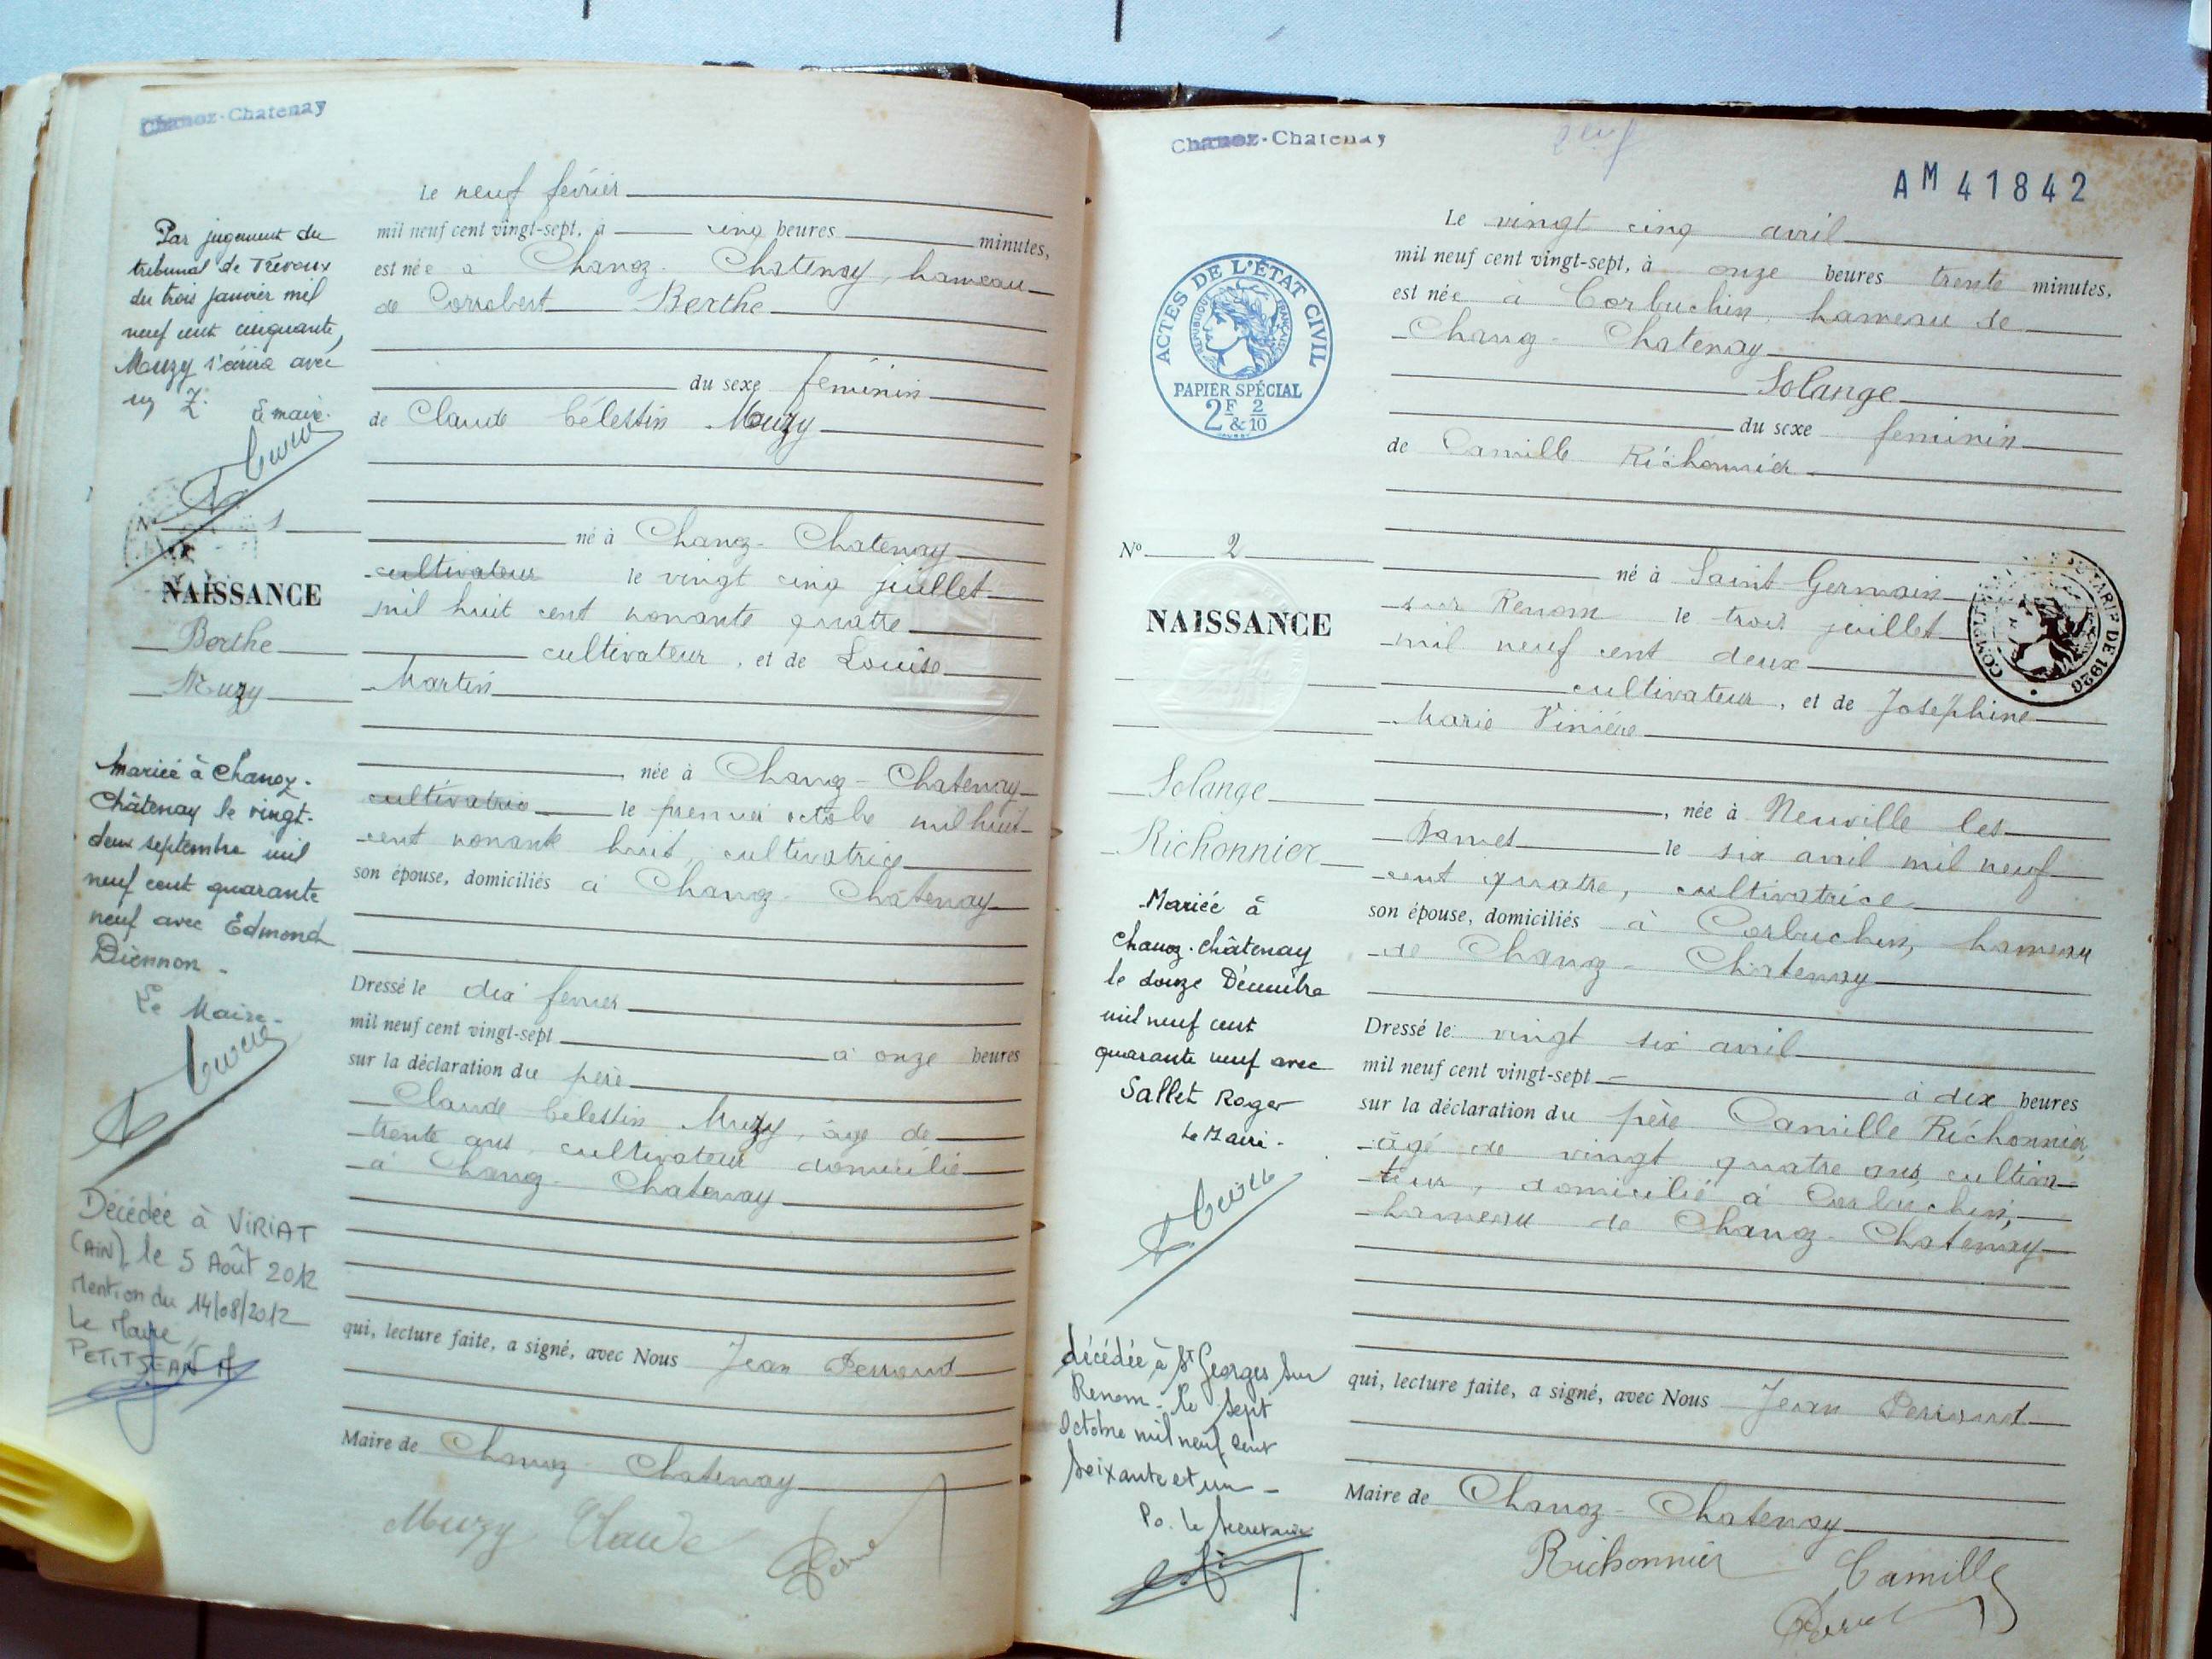 Chanoz-Chatenay
Le neuf février
mil neuf cent vingt-sept, à cinq heures minutes,
est née à Chanoz-Chatenay, hameau
de Corrobert Berthe
du sexe feminin
de Claude Célestin Muzy
né à Chanoz-Chatenay
cultivateur le vingt cinq juillet
mil huit cent nonante quatre
cultivateur, et de Louise
Martin
née à Chanoz-Chatenay
cultivatrice le premier octobre mil huit
cent nonante huit, cultivatrice
son épouse, domiciliés à Chanoz-Chatenay
Dressé le dix fevrier
mil neuf cent vingt-sept à onze heures
sur la déclaration du père
Claude Célestin Muzy, âgé de
trente ans, cultivateur domicilié
à Chanoz-Chatenay
qui, lecture faite, a signé, avec Nous Jean Perraud
Maire de Chanoz-Chatenay
Muzy Claude
Par jugement du
tribunal de Trévoux
du trois janvier mil
neuf cent cinquante,
Muzy s'écrira avec
un Z.
Le maire.
N° 1
NAISSANCE
Berthe
Muzy
Mariée à Chanoz-
Châtenay le vingt-
deux septembre mil
neuf cent quarante
neuf avec Edmond
Diennon -
Le Maire -
Décédée à VIRIAT
(AIN), le 5 Août 2012
Mention du 14/08/2012
Le Maire,
PETITJEAN A
Chanoz-Chatenay
AM 41842
ACTES DE L'ÉTAT CIVIL
RÉPUBLIQUE FRANÇAISE
PAPIER SPÉCIAL
2F & 2/10
Le vingt cinq avril
mil neuf cent vingt-sept, à onze heures trente minutes,
est née à Corbuchin, hameau de
Chanoz-Chatenay
Solange
du sexe feminin
de Camille Richonnier
né à Saint Germain
sur Renom le trois juillet
mil neuf cent deux
cultivateur, et de Joséphine
Marie Vinière
, née à Neuville les
Dames le six avril mil neuf
cent quatre, cultivatrice
son épouse, domiciliés à Corbuchin, hameau
de Chanoz-Chatenay
Dressé le vingt six avril
mil neuf cent vingt-sept à dix heures
sur la déclaration du père Camille Richonnier,
âgé de vingt quatre ans, cultiva-
teur, domicilié à Corbuchin,
hameau de Chanoz-Chatenay
qui, lecture faite, a signé, avec Nous Jean Perraud
Maire de Chanoz-Chatenay
Richonnier Camille
TARIF DE 1926
N° 2
NAISSANCE
Solange
Richonnier
Mariée à
Chanoz-Châtenay
le douze Décembre
mil neuf cent
quarante neuf avec
Sallet Roger
Le Maire -
décédée à St Georges sur
Renom - le sept
Octobre mil neuf cent
soixante et un -
Po. Le Secrétaire